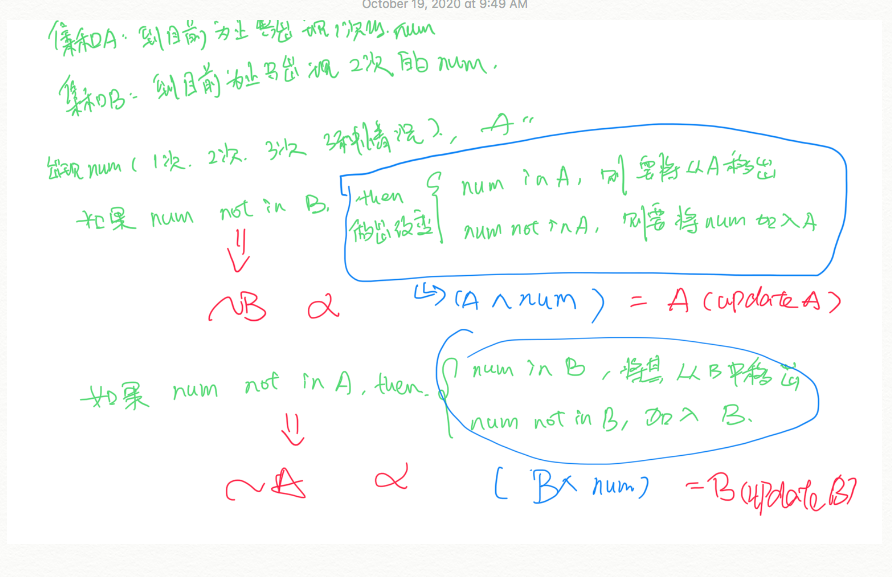 October 19, 2020 at 9:49 AM
集和A: 到目前为止 出现1次的 num
集和B: 到目前为止 出现 2次 的 num.
出现 num ( 1次. 2次. 3次 3种情况 ), A
如果 num not in B, then { num in A, 则要将从A移出
做出改变 { num not in A, 则要将num加入A
⇓
~B & ↳ (A ∧ num) = A (update A)
如果 num not in A, then. { num in B, 将其从B中移出
num not in B, 加入 B.
⇓
~A & (B ∧ num) = B (update B)